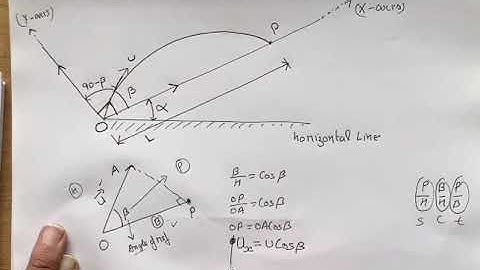 (Y-axis)
(X-axis)
P
U
90-β
β
α
O
L
horizontal Line
A
P
H
U
B
β
P
O
Angle of ref
B/H = Cosβ
OP/OA = Cosβ
OP = OA Cosβ
Ux = U Cosβ
P/H B/H P/B
S C t